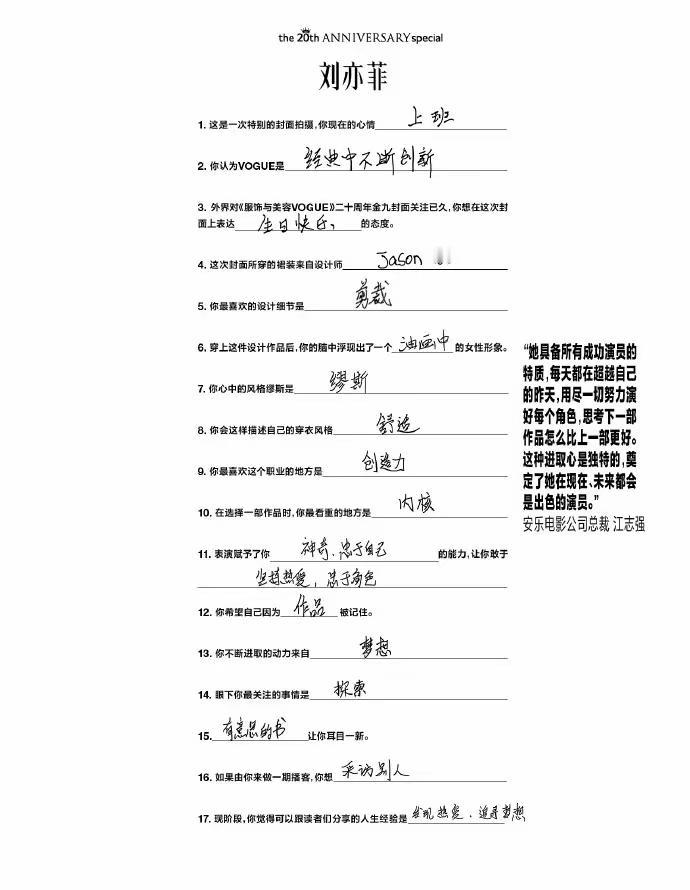 the 20th ANNIVERSARY special
刘亦菲
1. 这是一次特别的封面拍摄,你现在的心情 上班
2. 你认为VOGUE是 经典中不断创新
3. 外界对《服饰与美容VOGUE》二十周年金九封面关注已久,你想在这次封
面上表达 生日快乐、 的态度。
4. 这次封面所穿的裙装来自设计师 Jason
5. 你最喜欢的设计细节是 剪裁
6. 穿上这件设计作品后,你的脑中浮现出了一个 油画中 的女性形象。
7. 你心中的风格缪斯是 缪斯
8. 你会这样描述自己的穿衣风格 舒适
9. 你最喜欢这个职业的地方是 创造力
10. 在选择一部作品时,你最看重的地方是 内核
11. 表演赋予了你 神奇、忠于自己 的能力,让你敢于
坚持热爱,忠于角色
12. 你希望自己因为 作品 被记住。
13. 你不断进取的动力来自 梦想
14. 眼下你最关注的事情是 探索
15. 有意思的书 让你耳目一新。
16. 如果由你来做一期播客,你想 采访别人
17. 现阶段,你觉得可以跟读者们分享的人生经验是 发现热爱、追寻梦想
“她具备所有成功演员的
特质,每天都在超越自己
的昨天,用尽一切努力演
好每个角色,思考下一部
作品怎么比上一部更好。
这种进取心是独特的,奠
定了她在现在、未来都会
是出色的演员。”
安乐电影公司总裁 江志强